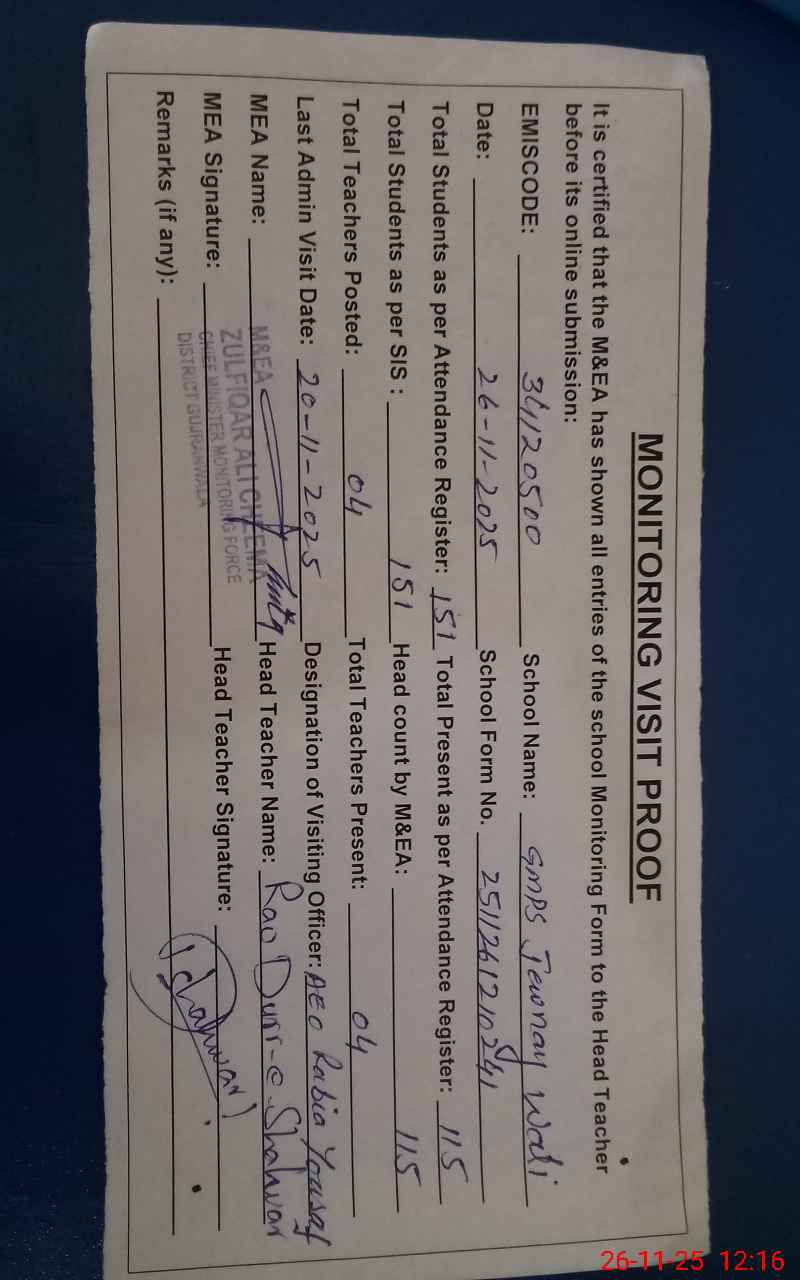 MONITORING VISIT PROOF
It is certified that the M&EA has shown all entries of the school Monitoring Form to the Head Teacher
before its online submission:
EMISCODE: 34120500 School Name: GMPS Jewnay Wali
Date: 26-11-2025 School Form No. 251126121
Total Students as per Attendance Register: 151 Total Present as per Attendance Register: 115
Total Students as per SIS : 151 Head count by M&EA: 115
Total Teachers Posted: 04 Total Teachers Present: 04
Last Admin Visit Date: 20-11-2025 Designation of Visiting Officer: AEO Rabia Yousaf
MEA Name: Head Teacher Name: Rao Durr-e-Shahwar
MEA Signature: Head Teacher Signature: Shahwar
Remarks (if any):
M&EA
ZULFIQAR ALI CHEEMA
CHIEF MINISTER MONITORING FORCE
DISTRICT GUJRANWALA
26-11-25 12:16